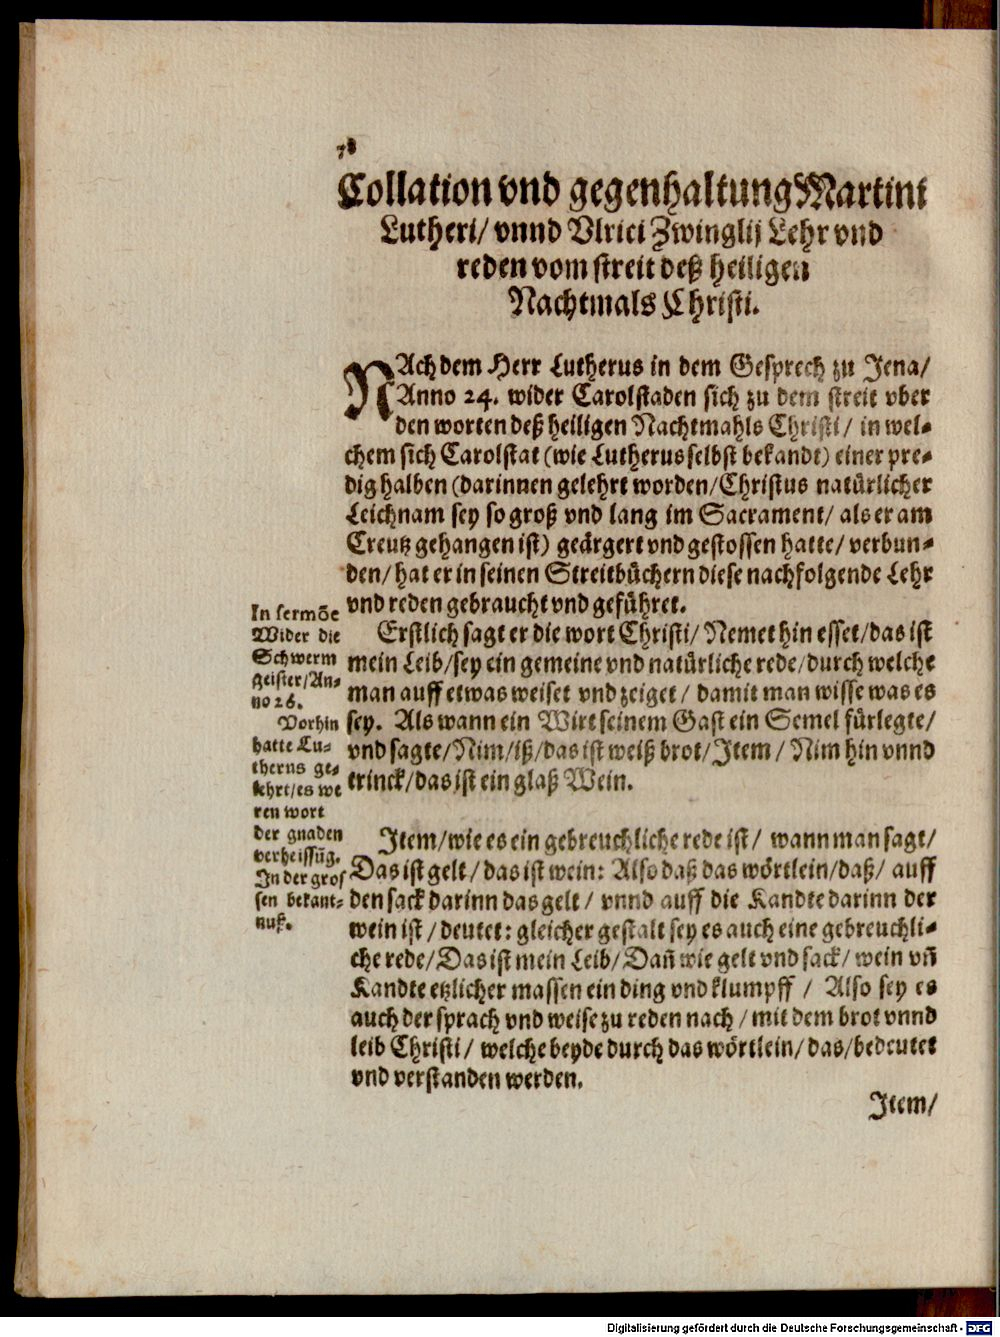 78
Collation vnd gegenhaltung Martini
Lutheri/ vnnd Vlrici Zwinglij Lehr vnd
reden vom streit deß heiligen
Nachtmals Christi.
NAch dem Herr Lutherus in dem Gesprech zu Jena/
Anno 24. wider Carolstaden sich zu dem streit vber
den worten deß heiligen Nachtmahls Christi/ in wel-
chem sich Carolstat (wie Lutherus selbst bekandt) einer pre-
dig halben (darinnen gelehrt worden/ Christus natürlicher
Leichnam sey so groß vnd lang im Sacrament/ als er am
Creutz gehangen ist) geärgert vnd gestossen hatte/ verbun-
den/ hat er in seinen Streitbüchern diese nachfolgende Lehr
vnd reden gebraucht vnd geführet.
Erstlich sagt er die wort Christi/ Nemet hin esset/ das ist
mein Leib/ sey ein gemeine vnd natürliche rede/ durch welche
man auff etwas weiset vnd zeiget/ damit man wisse was es
sey. Als wann ein Wirt seinem Gast ein Semel fürlegte/
vnd sagte/ Nim/ iß/ das ist weiß brot/ Item/ Nim hin vnnd
trinck/ das ist ein glaß Wein.
Item/ wie es ein gebreuchliche rede ist/ wann man sagt/
Das ist gelt/ das ist wein: Also daß das wörtlein/ daß/ auff
den sack darinn das gelt/ vnnd auff die Kandte darinn der
wein ist/ deutet: gleicher gestalt sey es auch eine gebreuchli-
che rede/ Das ist mein Leib/ Dañ wie gelt vnd sack/ wein vñ
Kandte etzlicher massen ein ding vnd klumpff/ Also sey es
auch der sprach vnd weise zu reden nach/ mit dem brot vnnd
leib Christi/ welche beyde durch das wörtlein/ das/ bedeutet
vnd verstanden werden.
Item/
In sermõe
Wider die
Schwerm
geister/ An-
no 26.
Vorhin
hatte Lu-
therus ge-
lehrt/ es we
ren wort
der gnaden
verheissũg.
In der gros
sen bekant-
nuß.
Digitalisierung gefördert durch die Deutsche Forschungsgemeinschaft - DFG